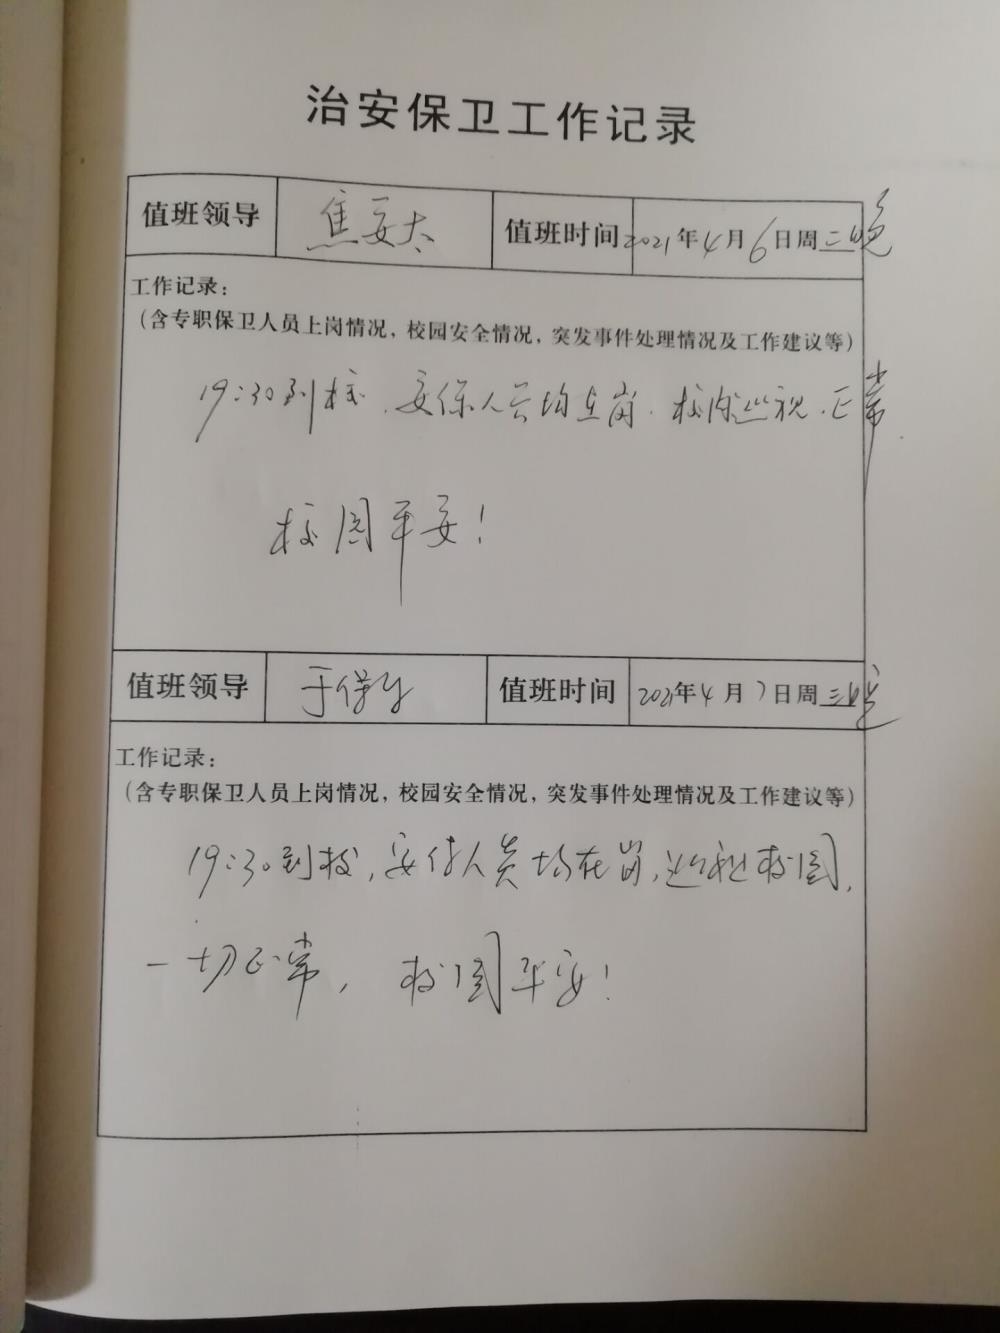 治安保卫工作记录
值班领导 焦安太 值班时间 2021年4月6日周二晚
工作记录：
（含专职保卫人员上岗情况，校园安全情况，突发事件处理情况及工作建议等）
19:30到校，安保人员均在岗，校园巡视，正常
校园平安！
值班领导 于保 值班时间 2021年4月7日周三晚
工作记录：
（含专职保卫人员上岗情况，校园安全情况，突发事件处理情况及工作建议等）
19:30到校，安保人员均在岗，巡视校园，
一切正常，校园平安！